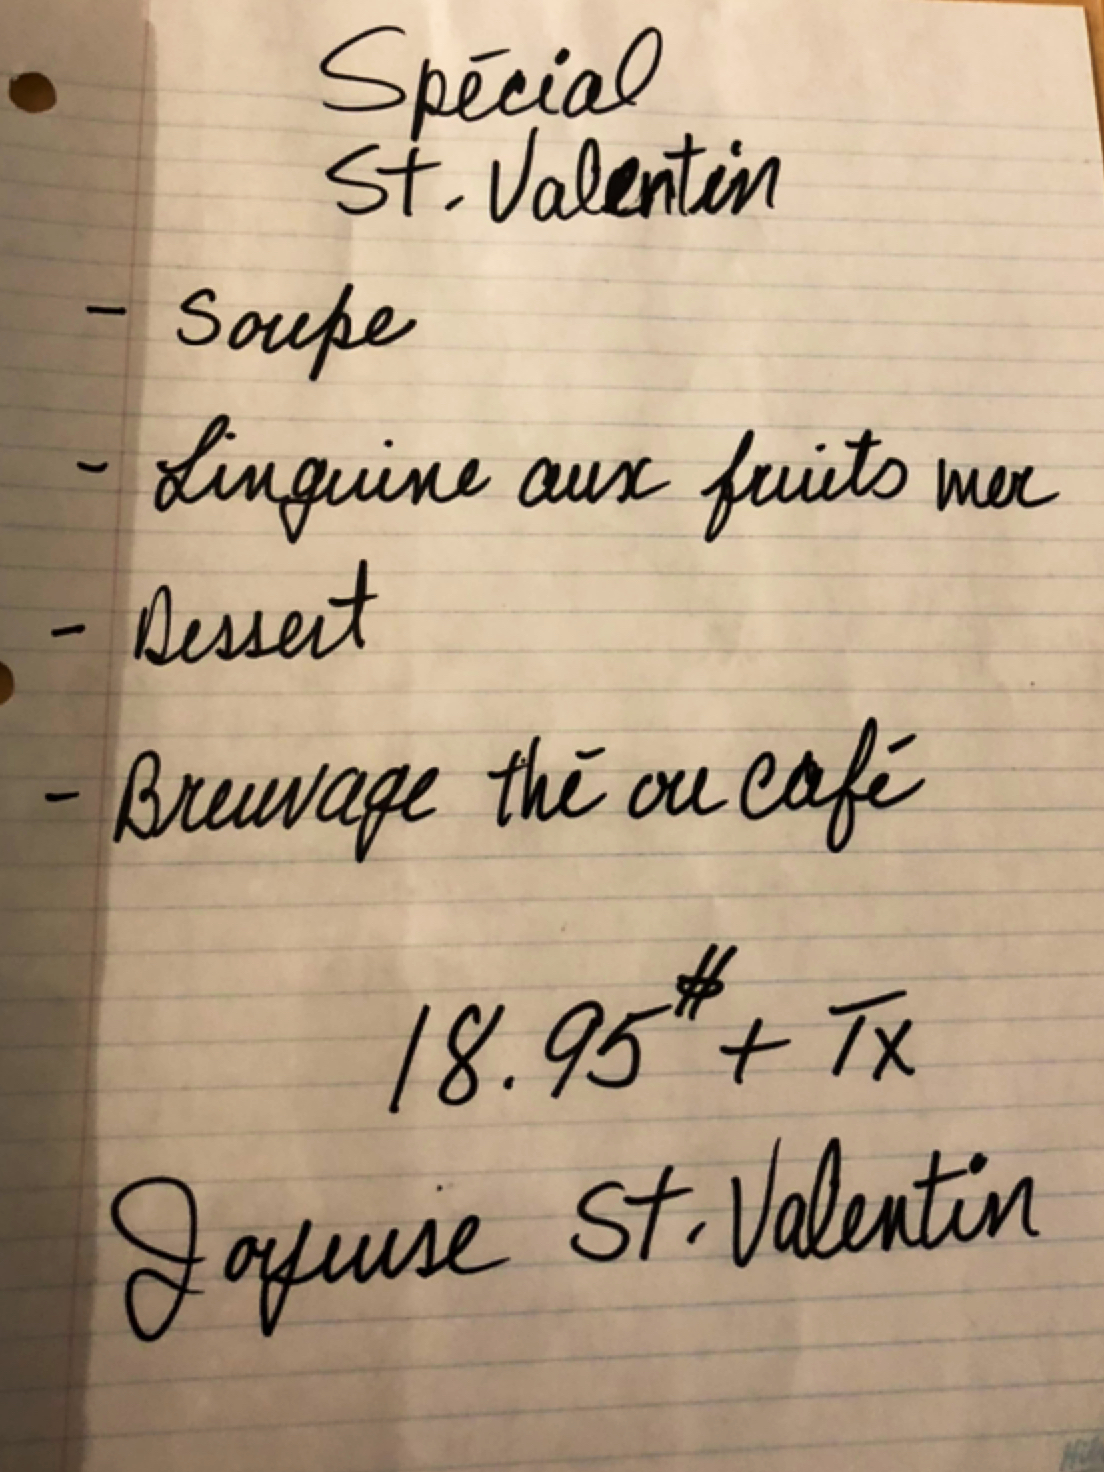 Spécial
St. Valentin
- Soupe
- Linguine aux fruits mer
- Dessert
- Breuvage thé ou café
18.95$ + Tx
Joyeuse St. Valentin